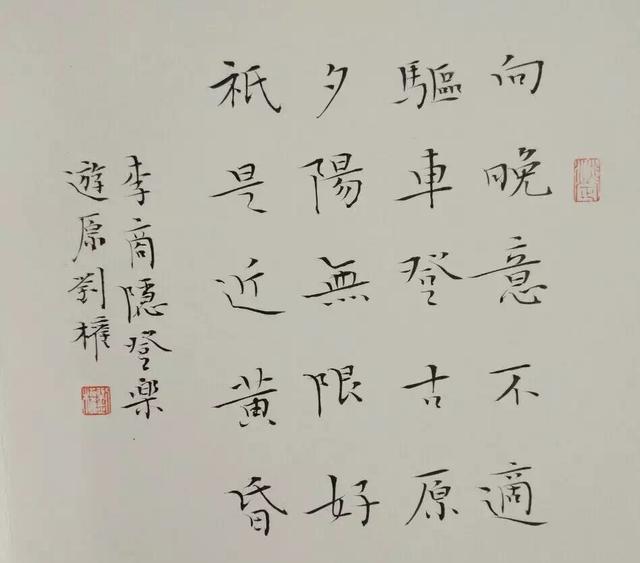 向晚意不適
驅車登古原
夕陽無限好
祇是近黃昏
李商隱登樂
遊原劉權